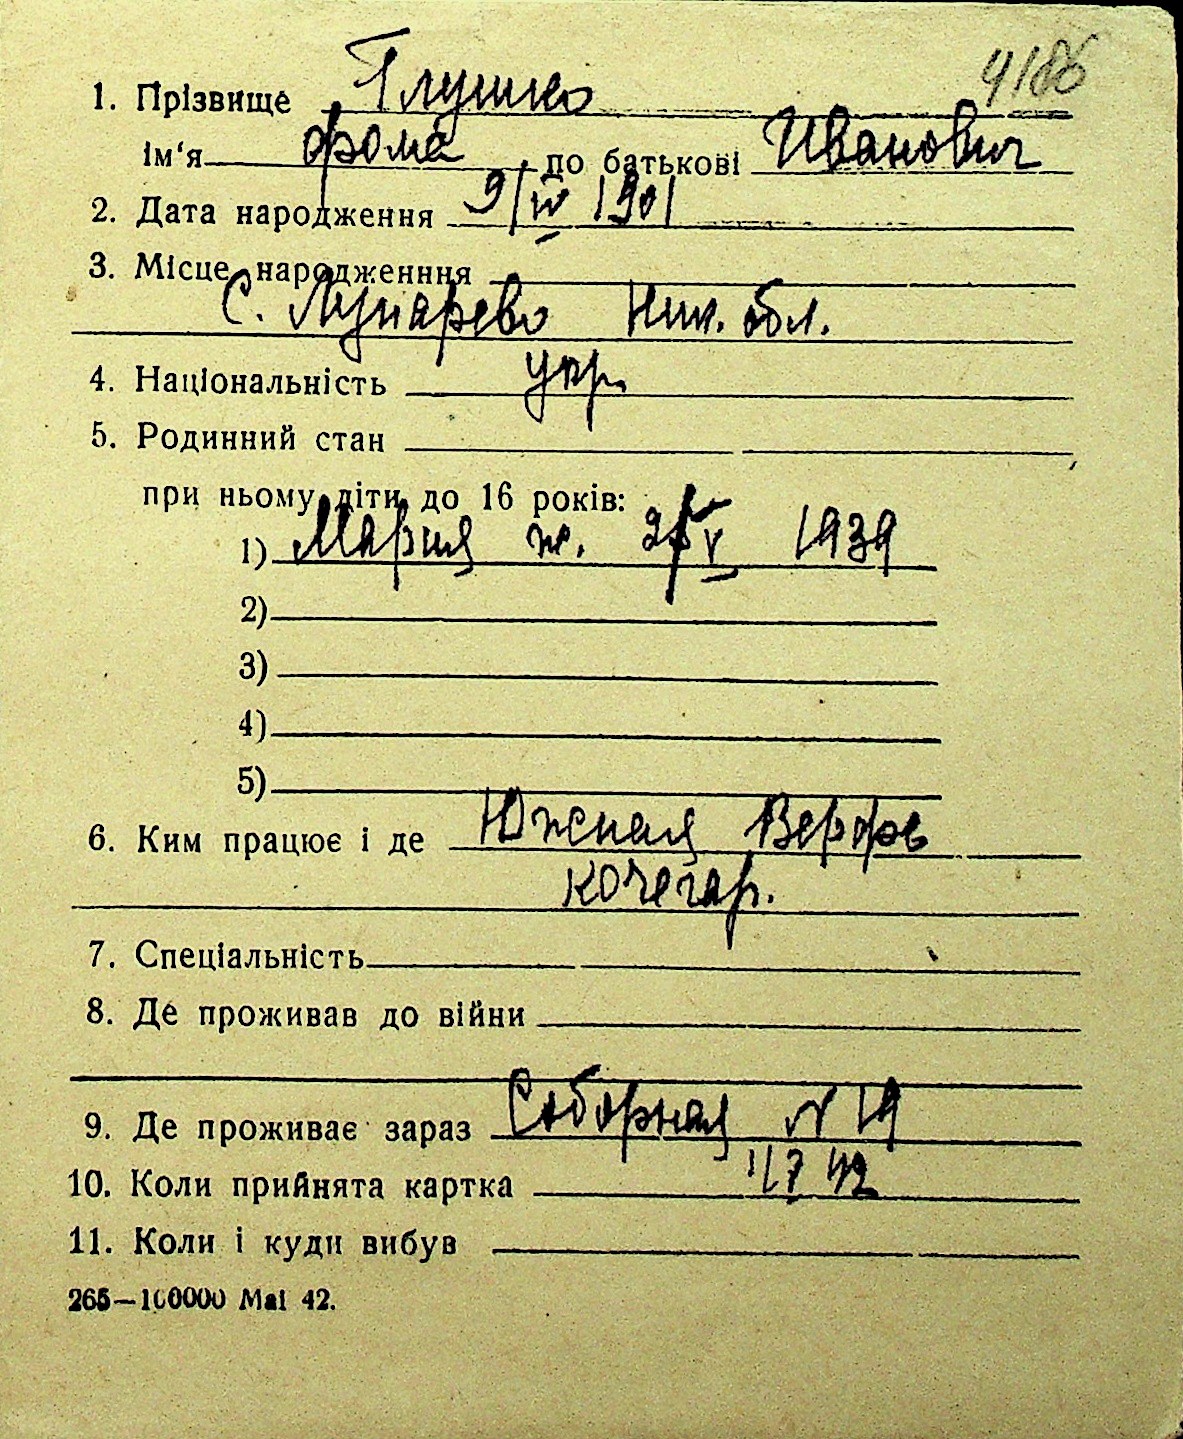 4186
1. Прізвище Глушко
ім‘я Фома по батькові Иванович
2. Дата народження 9/IV 1901
3. Місце народженння
с. Лупарево Ник. обл.
4. Національність укр.
5. Родинний стан
при ньому діти до 16 років:
1) Мария ж. V 1939
2)
3)
4)
5)
6. Ким працює і де Южная Верфь
кочегар.
7. Спеціальність
8. Де проживав до війни
9. Де проживає зараз Соборная N 19
10. Коли прийнята картка 1/7 42
11. Коли і куди вибув
265—100000 Mai 42.